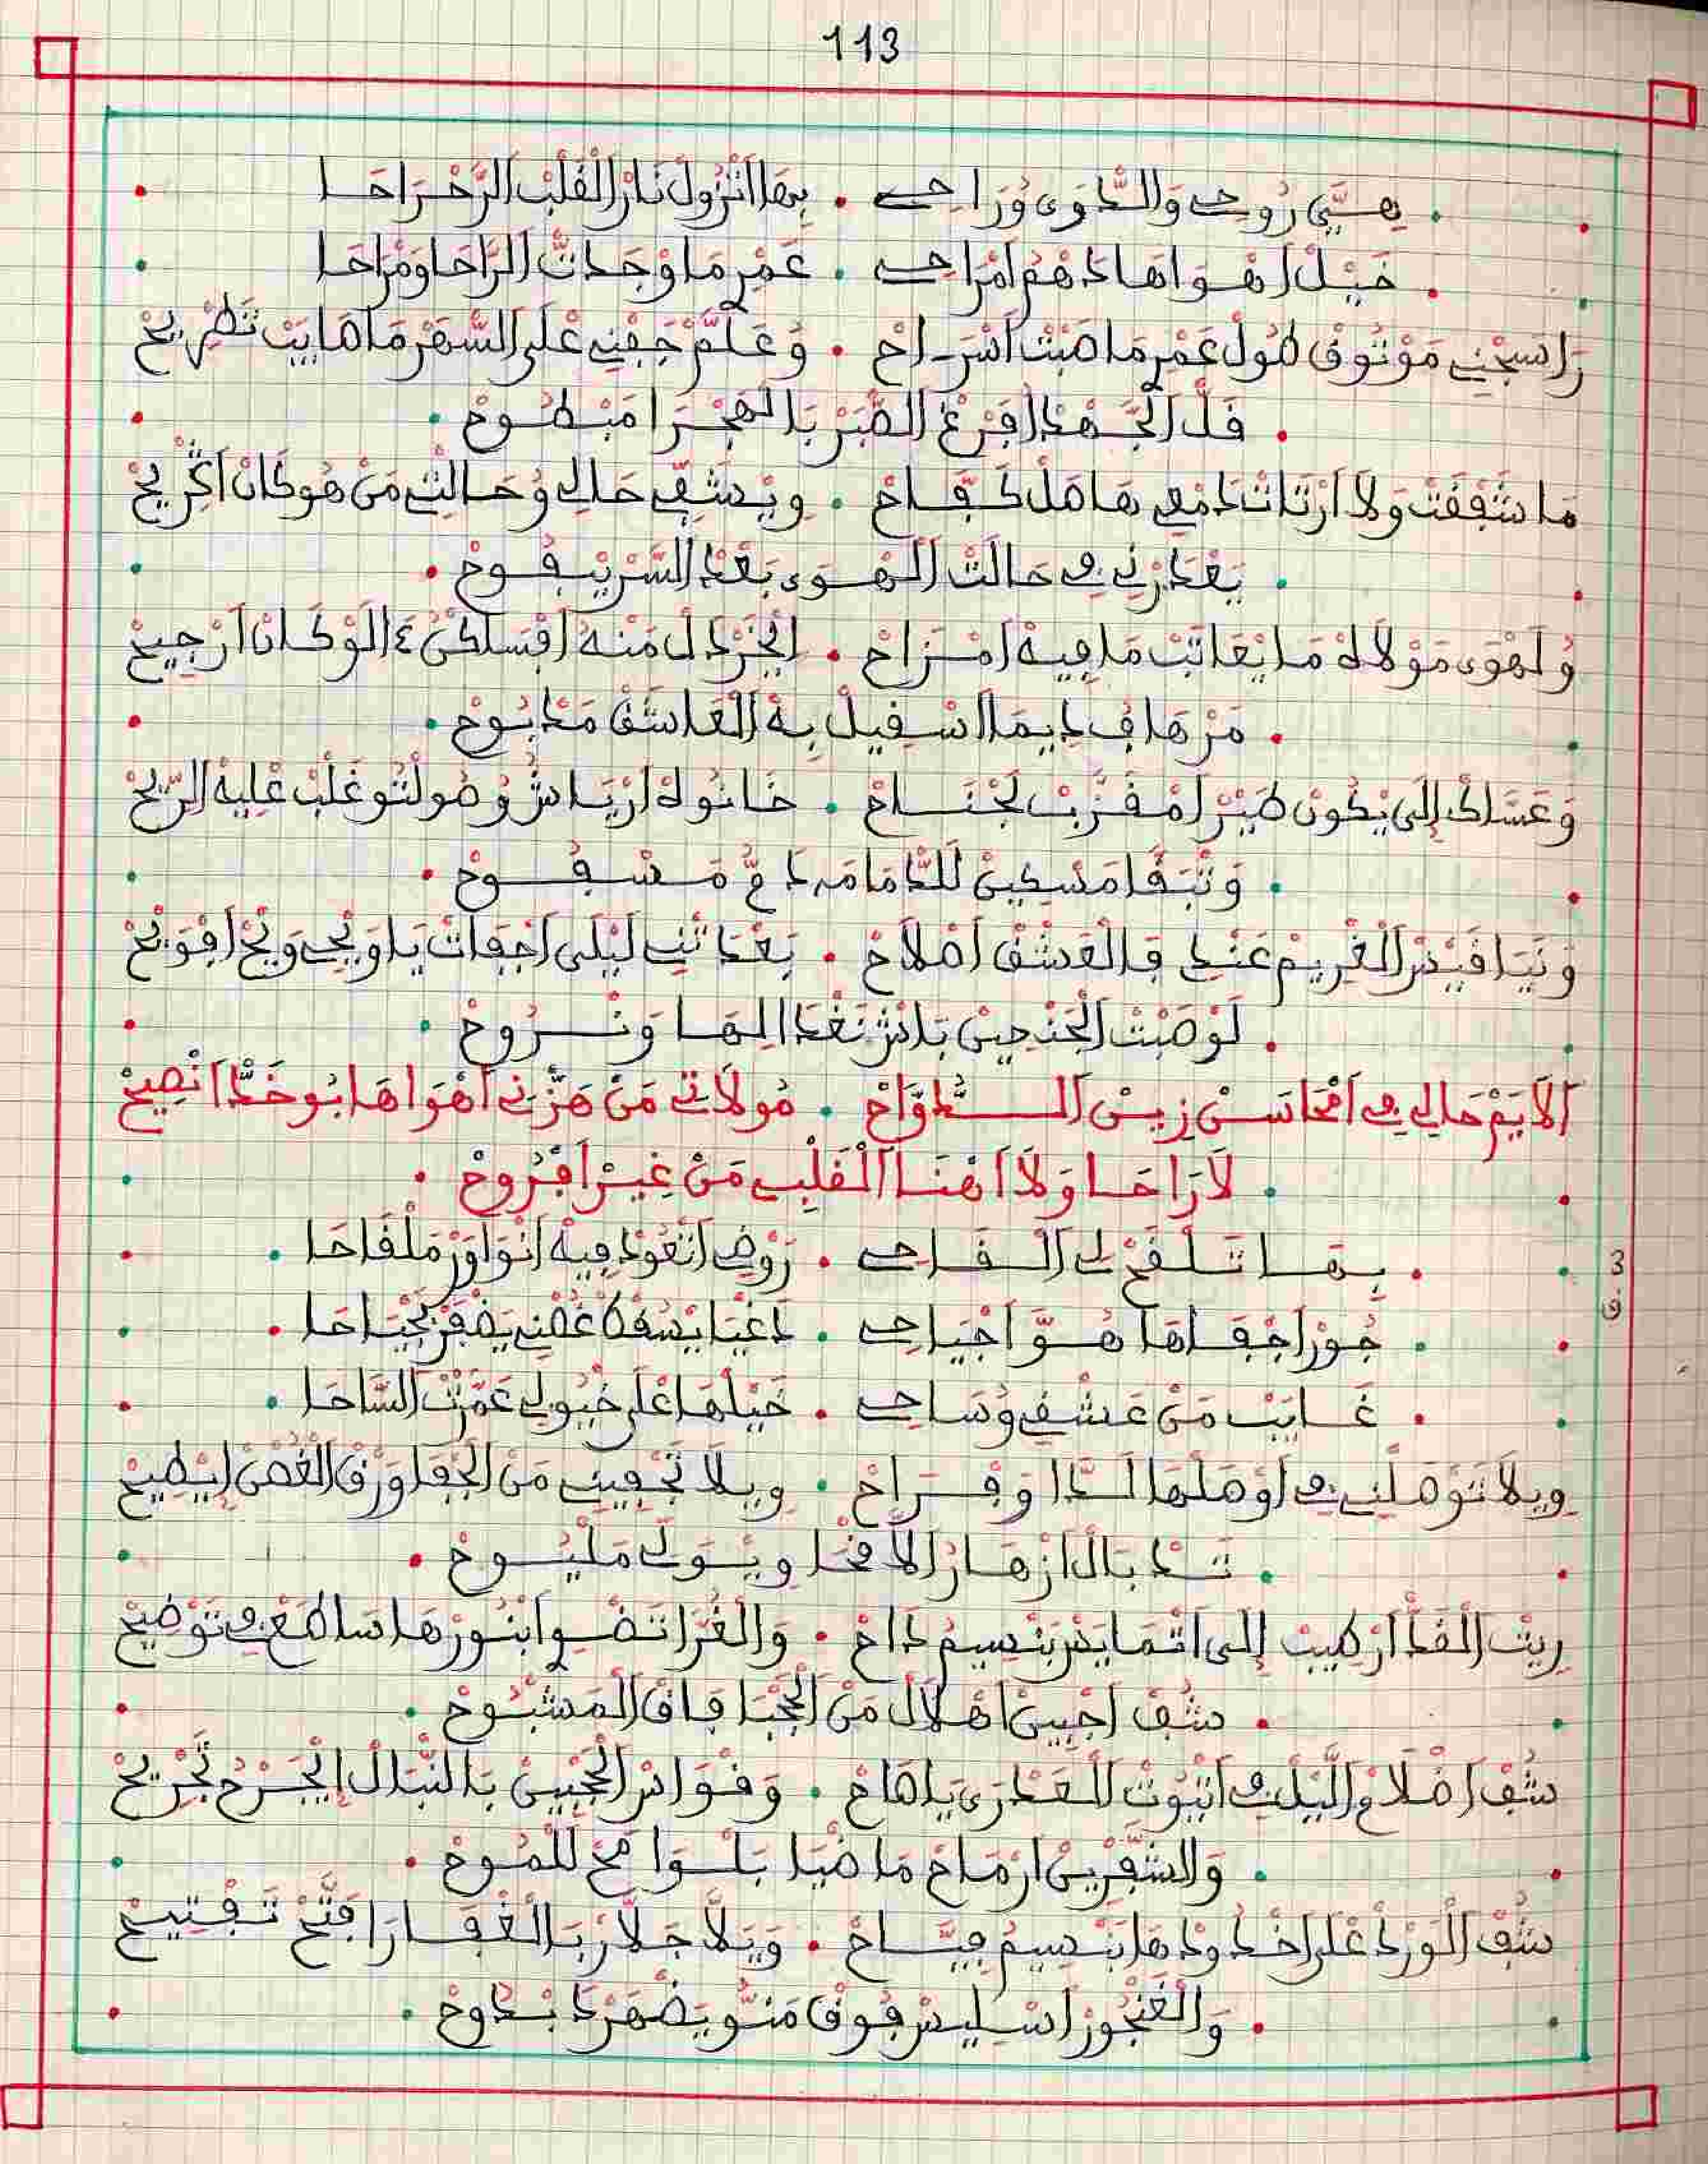 113
هِيَّ رُوحِي وَالدَّوَى وُرَاحِي . بِهَا انْزُولْ نَارْ الْقَلْبْ الرَّحْرَاحَا
خَيْلْ اهْوَاهَا دَهْمُ امْرَاحِي . عَمْرِ مَا وْجَدْتْ الرَّاحَا وَمْرَاحَا
رَاسِجْنِي مَوْثُوقْ طُولْ عَمْرِ مَا صَبْتْ اسْرَاحْ . وَعَلَّمْ جَفْنِي عْلَى السّْهَرْ مَاطَايَبْ تَطْرِيحْ
قَلّْ الْجَهْدْ افْرَغْ الصّْبَرْ بَالْهَجْرَا مَبْطُوحْ
مَا شَفْقَتْ وَلَا ارْتَاتْ دَمْعِي هَاطَلْ كَفَّاحْ . وِيْشَفِّي حَالِي وُحَالْتِي مَنْ هُو كَانْ اكْرِيحْ
يَعْدَرْنِي فِي حَالَتْ الْهْوَى بَعْدْ السَّرّْ يْبُوحْ
وُلَهْوَى مَوْلَاهْ مَا يْعَاتَبْ مَا فِيهْ امْزَاحْ . الْخَرْدَلْ مَنْهُ اقْسَا كْنُ ء الَوْ كَانْ ارْجِيحْ
مَرْهَافْ دِيمَا اسْقِيلْ بِهْ الْعَاشَقْ مَدْبُوحْ
وَعَسَاكْ إِلَى يْكُونْ طَيْرْ امْقَرَّبْ لَجْنَاحْ . خَانُوهْ ارْيَاشُ وُصُولْتُو غَلْبْ عْلِيهْ الرِّيحْ
وَتْبَقَا مَسْكِينْ لَلدَّامَا مَدَمْعْ مَسْفُوحْ
وَنَيَا قَيْسْ الْغْرِيمْ عَنْدِ فَالْعَشْقْ اصْلَاحْ . بَعْدَتْنِي لَيْلَى اجْفَاتْ يَا وِيحِي وَيْحْ افْوَيْحْ
لَوْ صَبْتْ الْجَنْحِينْ بَاشْ نَغْدَا الِهَا وَنْرُوحْ
الَايَمْ حَالِي فِي امْحَاسَنْ زِينْ الدُّوَّاحْ . مُولَاتِي مَنْ هَزّْنِي اهْوَاهَا بُوخَدّْ انْصِيحْ
لَا رَاحَا وَلَا اهْنَا الْقَلْبِي مَنْ غِيرْ اقْرُوحْ
3
ق
بِهَا تَلْقَحْ لِي الْقَاحِي . رَوْضِي اتْعُودْ فِيهْ انْوَاوَرْ مَلْقَاحَا
جُورْ اجْفَاهَا هُوَّ اجْيَاحِي . دَغْيَا يْسَقْطْ غُصْنِي يَضْفَرْ بَجْيَاحَا
غَايَبْ مَنْ عَشْقِي وُسَاحِي . خَيْلْهَا عْلَى خْيُولِي عَمَّرْتْ السَّاحَا
وِيلَا تَوْصَلْنِي فِي اوْصَلْهَا الدَّا وَفْرَاحْ . وِيلَا تَجْفِينِي مَنْ الْجْفَا وَرْقْ الْغُصْنْ إِيطِيحْ
تَدْبَالْ ازْهَارْ الَافْخَا وِيْوَلِّي مَلْيُوحْ
رِيتْ الْقَدّْ ارْطِيبْ إِلَى اتْمَايَسْ بَنْسِيمْ دَاحْ . وَالْغُرَّا تَضْوِ ابْنُورْهَا سَاطَعْ فِي تَوْضِيحْ
شُفْ اجْبِينْ اهْلَالْ مَنْ الْحْجْبَا فَاقْ الْمَشْبُوحْ
شُفْ اضْلَامْ اللّيلْ فِي اتْيُوتْ الْعَدْرَى يَاصَاحْ . وَقْوَاسْ الْحَجْبِينْ بَالنّْبَالْ إِيْجَرْحُ تَجْرِيحْ
وَالشَّفْرِينْ ارْمَاحْ مَاضْيَا بَلْوَامَحْ لَلْمُوحْ
شُفْ الْوَرْدْ عْلَى اخْدُودْهَا بَنْسِيمُ فِيَّاحْ . وَيَلَّا جَلَّارْ بَالْغْفَارَا فَتَّحْ تَفْتِيحْ
وَالْغَنْجُورْ اسْلِيسْ فُوقْ مَنُّو يَضْهَرْ دَبْدُوحْ